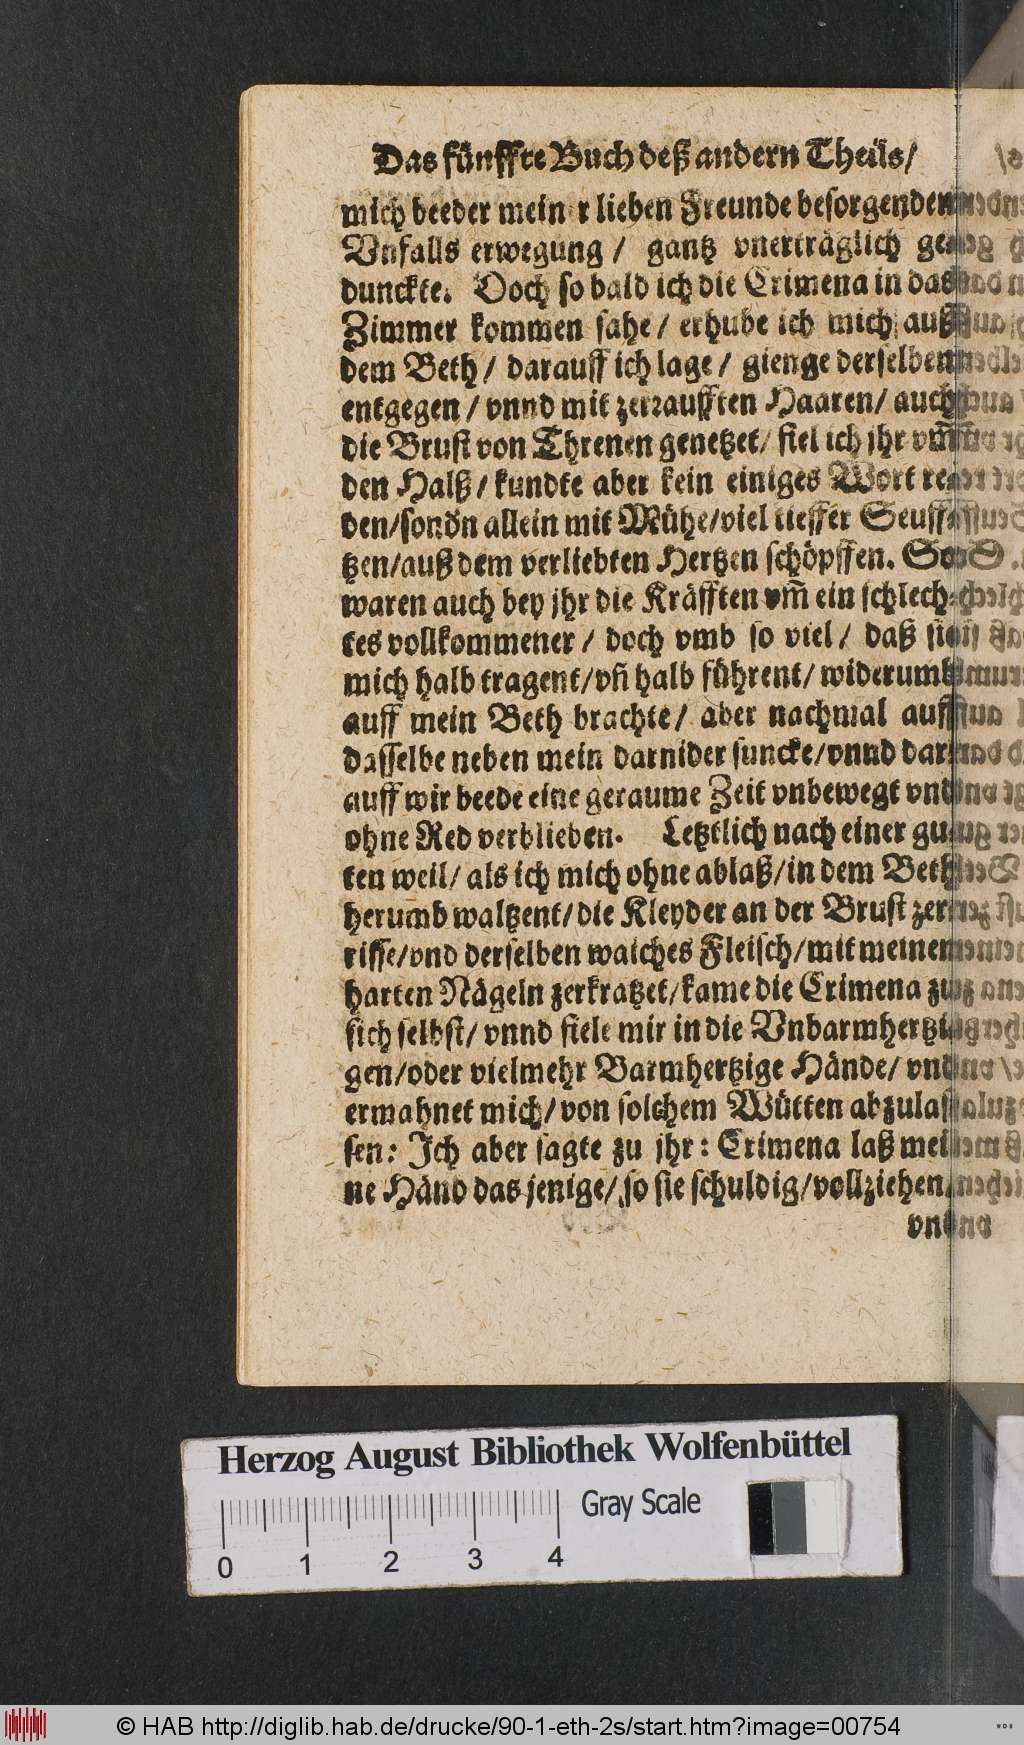 Das fünffte Buch deß andern Theils/
mich beeder meiner lieben Freunde besorgenden
Vnfalls erwegung / gantz vnerträglich
dunckte. Doch so bald ich die Crimena in das
Zimmer kommen sahe / erhube ich mich auß
dem Beth / darauff ich lage / gienge derselben
entgegen / vnnd mit zerraufften Haaren / auch
die Brust von Threnen genetzet / fiel ich jhr vm̃
den Halß / kundte aber kein einiges Wort re-
den/sondn allein mit Mühe/viel tieffer Seuff-
tzen/auß dem verliebten Hertzen schöpffen. So
waren auch bey jhr die Kräfften vm̃ ein schlech-
tes vollkommener / doch vmb so viel / daß sie
mich halb tragent/vñ halb führent/ widerumb
auff mein Beth brachte/ aber nachmal auff
dasselbe neben mein darnider suncke/vnnd dar-
auff wir beede eine geraume Zeit vnbewegt vnd
ohne Red verblieben. Letztlich nach einer gu-
ten weil/ als ich mich ohne ablaß/in dem Beth
herumb waltzent/die Kleyder an der Brust zer-
risse/vnd derselben waiches Fleisch/mit meinen
harten Nägeln zerkratzet/kame die Crimena zu
sich selbst/ vnnd fiele mir in die Vnbarmhertzi-
gen/oder vielmehr Barmhertzige Hände/ vnd
ermahnet mich/ von solchem Wütten abzulas-
sen: Ich aber sagte zu jhr: Crimena laß mei-
ne Händ das jenige/ so sie schuldig/vollziehen/
vnd
Herzog August Bibliothek Wolfenbüttel
Gray Scale
0 1 2 3 4
© HAB http://diglib.hab.de/drucke/90-1-eth-2s/start.htm?image=00754